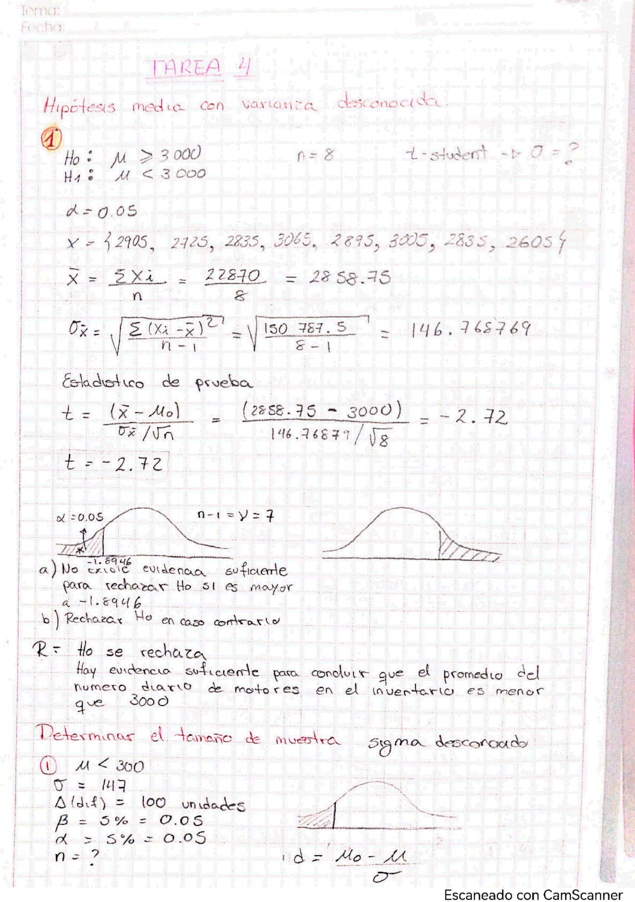 Tema:
Fecha:
TAREA 4
Hipótesis media con varianza desconocida
①
Ho: μ ⩾ 3000 n = 8 t-student → σ = ?
H1: μ < 3000
α = 0.05
x = {2905, 2725, 2835, 3065, 2895, 3005, 2835, 2605}
x̄ = Σxi / n = 22870 / 8 = 2858.75
σx̄ = √(Σ(xi - x̄)² / n - 1) = √(150 787.5 / 8 - 1) = 146.768769
Estadístico de prueba
t = (x̄ - μo) / σx̄/√n = (2858.75 - 3000) / 146.76879/√8 = -2.72
t = -2.72
α = 0.05 n-1 = ν = 7
-1.8946
a) No existe evidencia suficiente
para rechazar Ho si es mayor
a -1.8946
b) Rechazar Ho en caso contrario
R = Ho se rechaza
Hay evidencia suficiente para concluir que el promedio del
numero diario de motores en el inventario es menor
que 3000
Determinar el tamaño de muestra sigma desconocido
① μ < 300
σ = 147
Δ(dif) = 100 unidades
β = 5% = 0.05
α = 5% = 0.05
n = ? d = μo - μ / σ
Escaneado con CamScanner